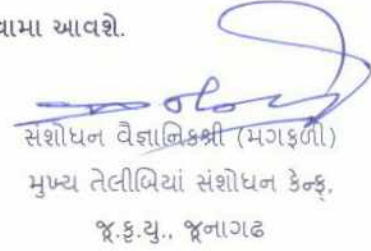 વામા આવશે.
સંશોધન વૈજ્ઞાનિકશ્રી (મગફળી)
મુખ્ય તેલીબિયાં સંશોધન કેન્દ્ર,
જૂ.કૃ.યુ., જૂનાગઢ